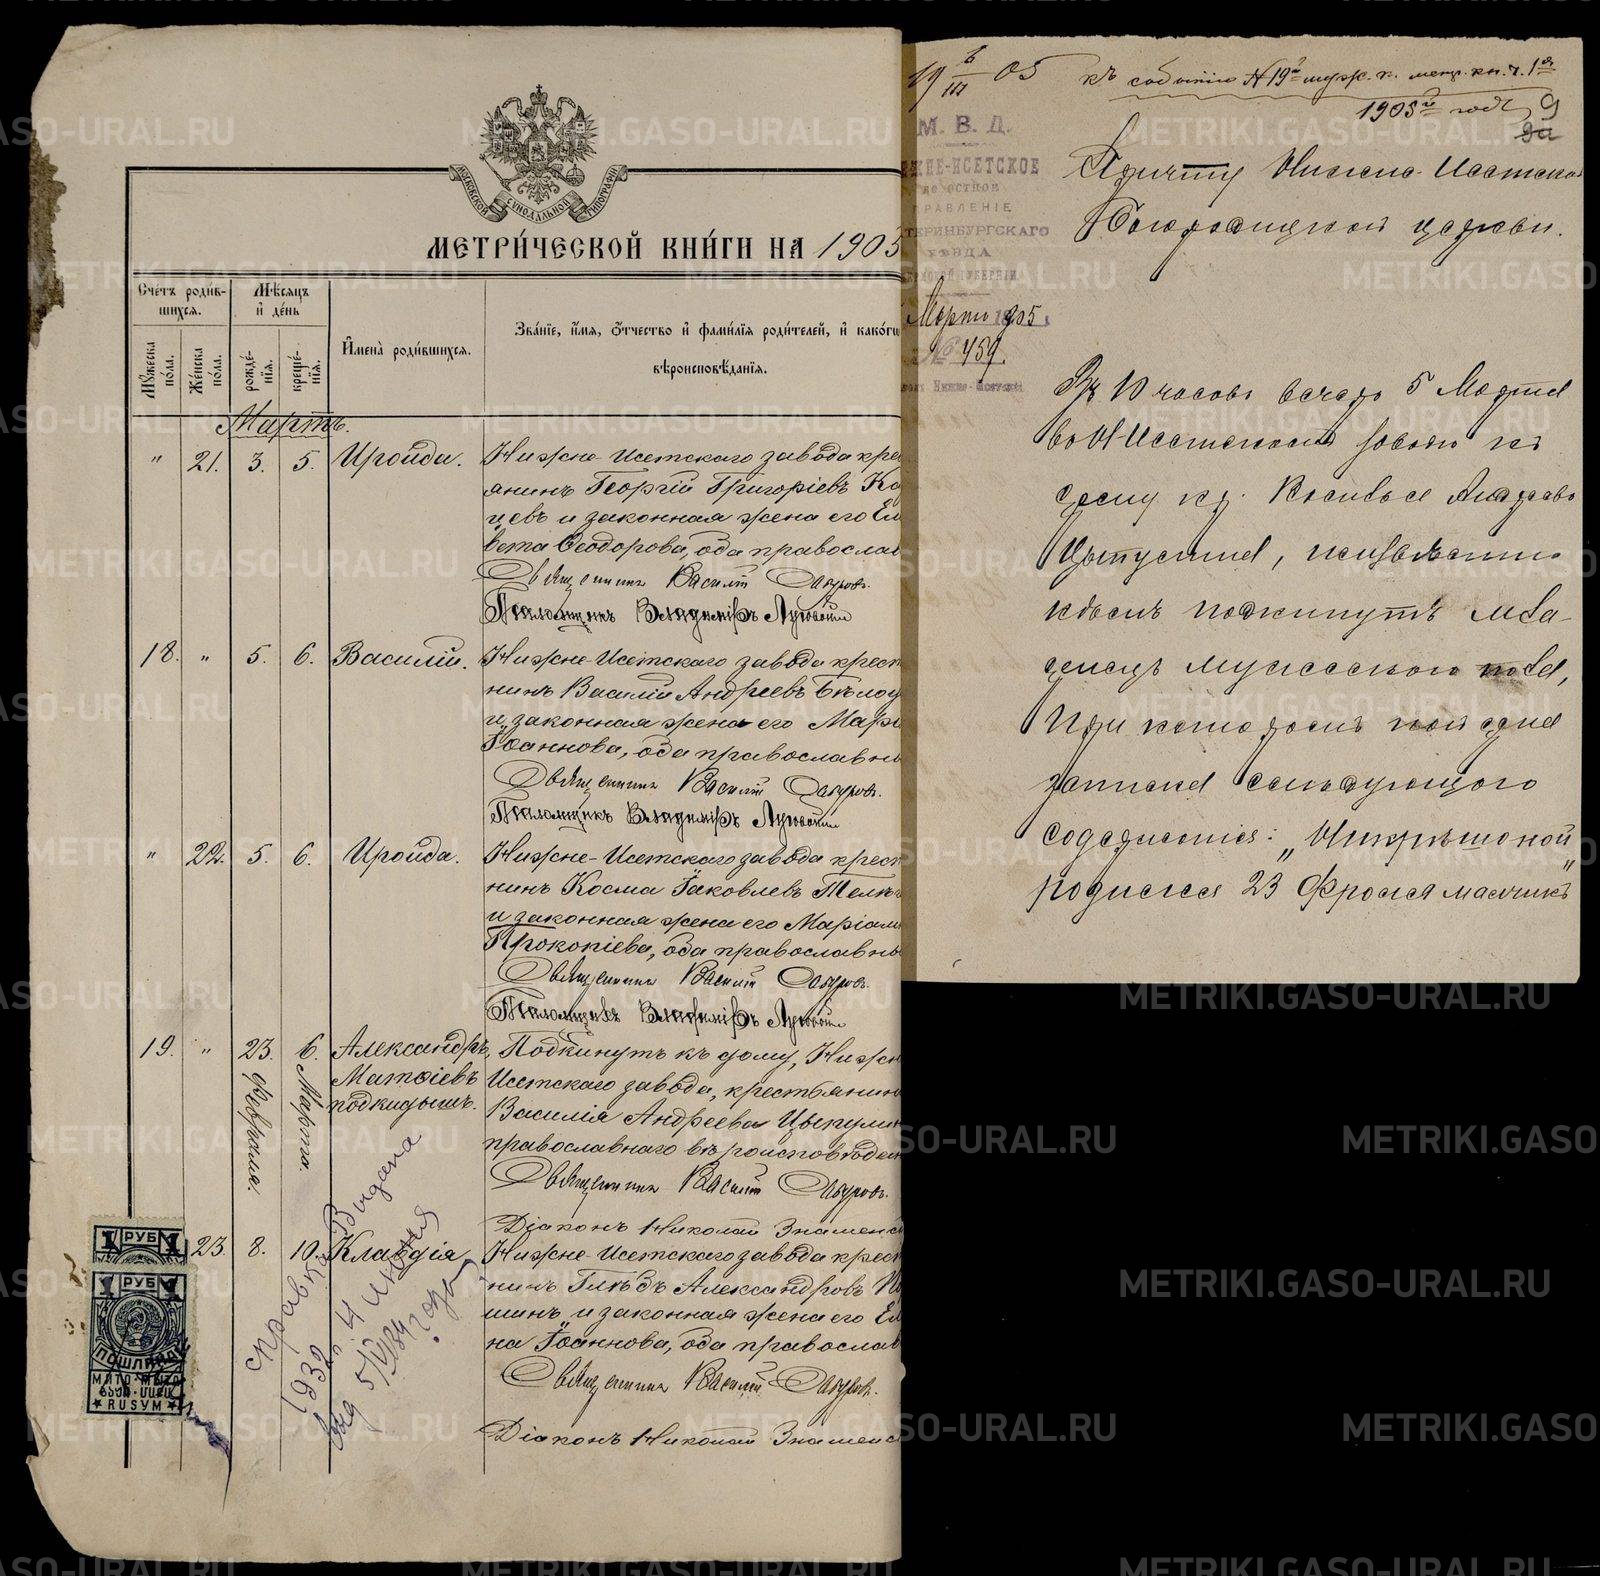 МОСКОВСКОЙ СѴНОДАЛЬНОЙ ТИПОГРАФІИ
МЕТРИ́ЧЕСКОЙ КНИ́ГИ НА 1905
Сче́тъ роди́в-
шихся.
Мѣ́сяцъ
и҆ де́нь
Мꙋ́жеска
по́ла.
Же́нска
по́ла.
рожде́-
нїя.
креще́-
нїя.
И҆мена̀ роди́вшихся.
Зва́нїе, и҆́мя, ѻ҆́тчество и҆ фами́лїя роди́телей, и҆ како́гѡ
вѣроисповѣ́данїя.
Мартъ.
" 21. 3. 5. Ираида.
Нижне-Исетскаго завода кре
янинъ Георгій Григоріевъ Ка
цевъ и законная жена его Ел
вета Ѳеодорова, оба православ
Священникъ Василій
Псаломщикъ Владиміръ Луговыхъ
18. " 5. 6. Василій.
Нижне-Исетскаго завода крест
нинъ Василій Андреевъ Бѣлоу
и законная жена его Марі
Іоаннова, оба православны
Священникъ Василій
Псаломщикъ Владиміръ Луговыхъ
" 22. 5. 6. Ираида.
Нижне-Исетскаго завода крест
нинъ Косма Іаковлевъ Телкъ
и законная жена его Маріам
Прокопіева, оба православны
Священникъ Василій
Псаломщикъ Владиміръ Луговыхъ
19. " 23. Февраля. 6. Марта. Александръ
Матѳіевъ
подкидышъ.
Подкинутъ къ дому, Нижн
Исетскаго завода, крестьянин
Василія Андреева Цыпуши
православнаго вѣроисповѣдан
Священникъ Василій
Діаконъ Николай Знаменс
23. 8. 10. Клавдія
Нижне-Исетскаго завода крест
нинъ Глѣбъ Александровъ
шинъ и законная жена его Ел
на Іоаннова, оба православ
Священникъ Василій
Діаконъ Николай Знаменс
справка Выдана
1932 г. 4 Июня
года
1 РУБ 1
1 РУБ 1
ПОШЛИНА
RUSYM
19 6/III 05
къ событію №19й муж. п. метр. кн. ч. 1я
1905й годъ
9
9а
М. В. Д.
ЖНЕ-ИСЕТСКОЕ
ВОЛОСТНОЕ
ПРАВЛЕНІЕ
ТЕРИНБУРГСКАГО
УѢЗДА
Марта 1905
№ 459.
Нижне-Исетскій
Причту Нижне-Исетской
Богородицкой церкви.
Въ 10 часовъ вечера 5 Марта
во Н-Исетскомъ заводѣ къ
дому кр. Василья Андреева
, неизвѣстно
кѣмъ подкинутъ мла-
денецъ мужескаго пола,
при которомъ найдена
записка слѣдующаго
содержанія: „Некрѣшоной
родился 23 Февраля мальчикъ"
METRIKI.GASO-URAL.RU